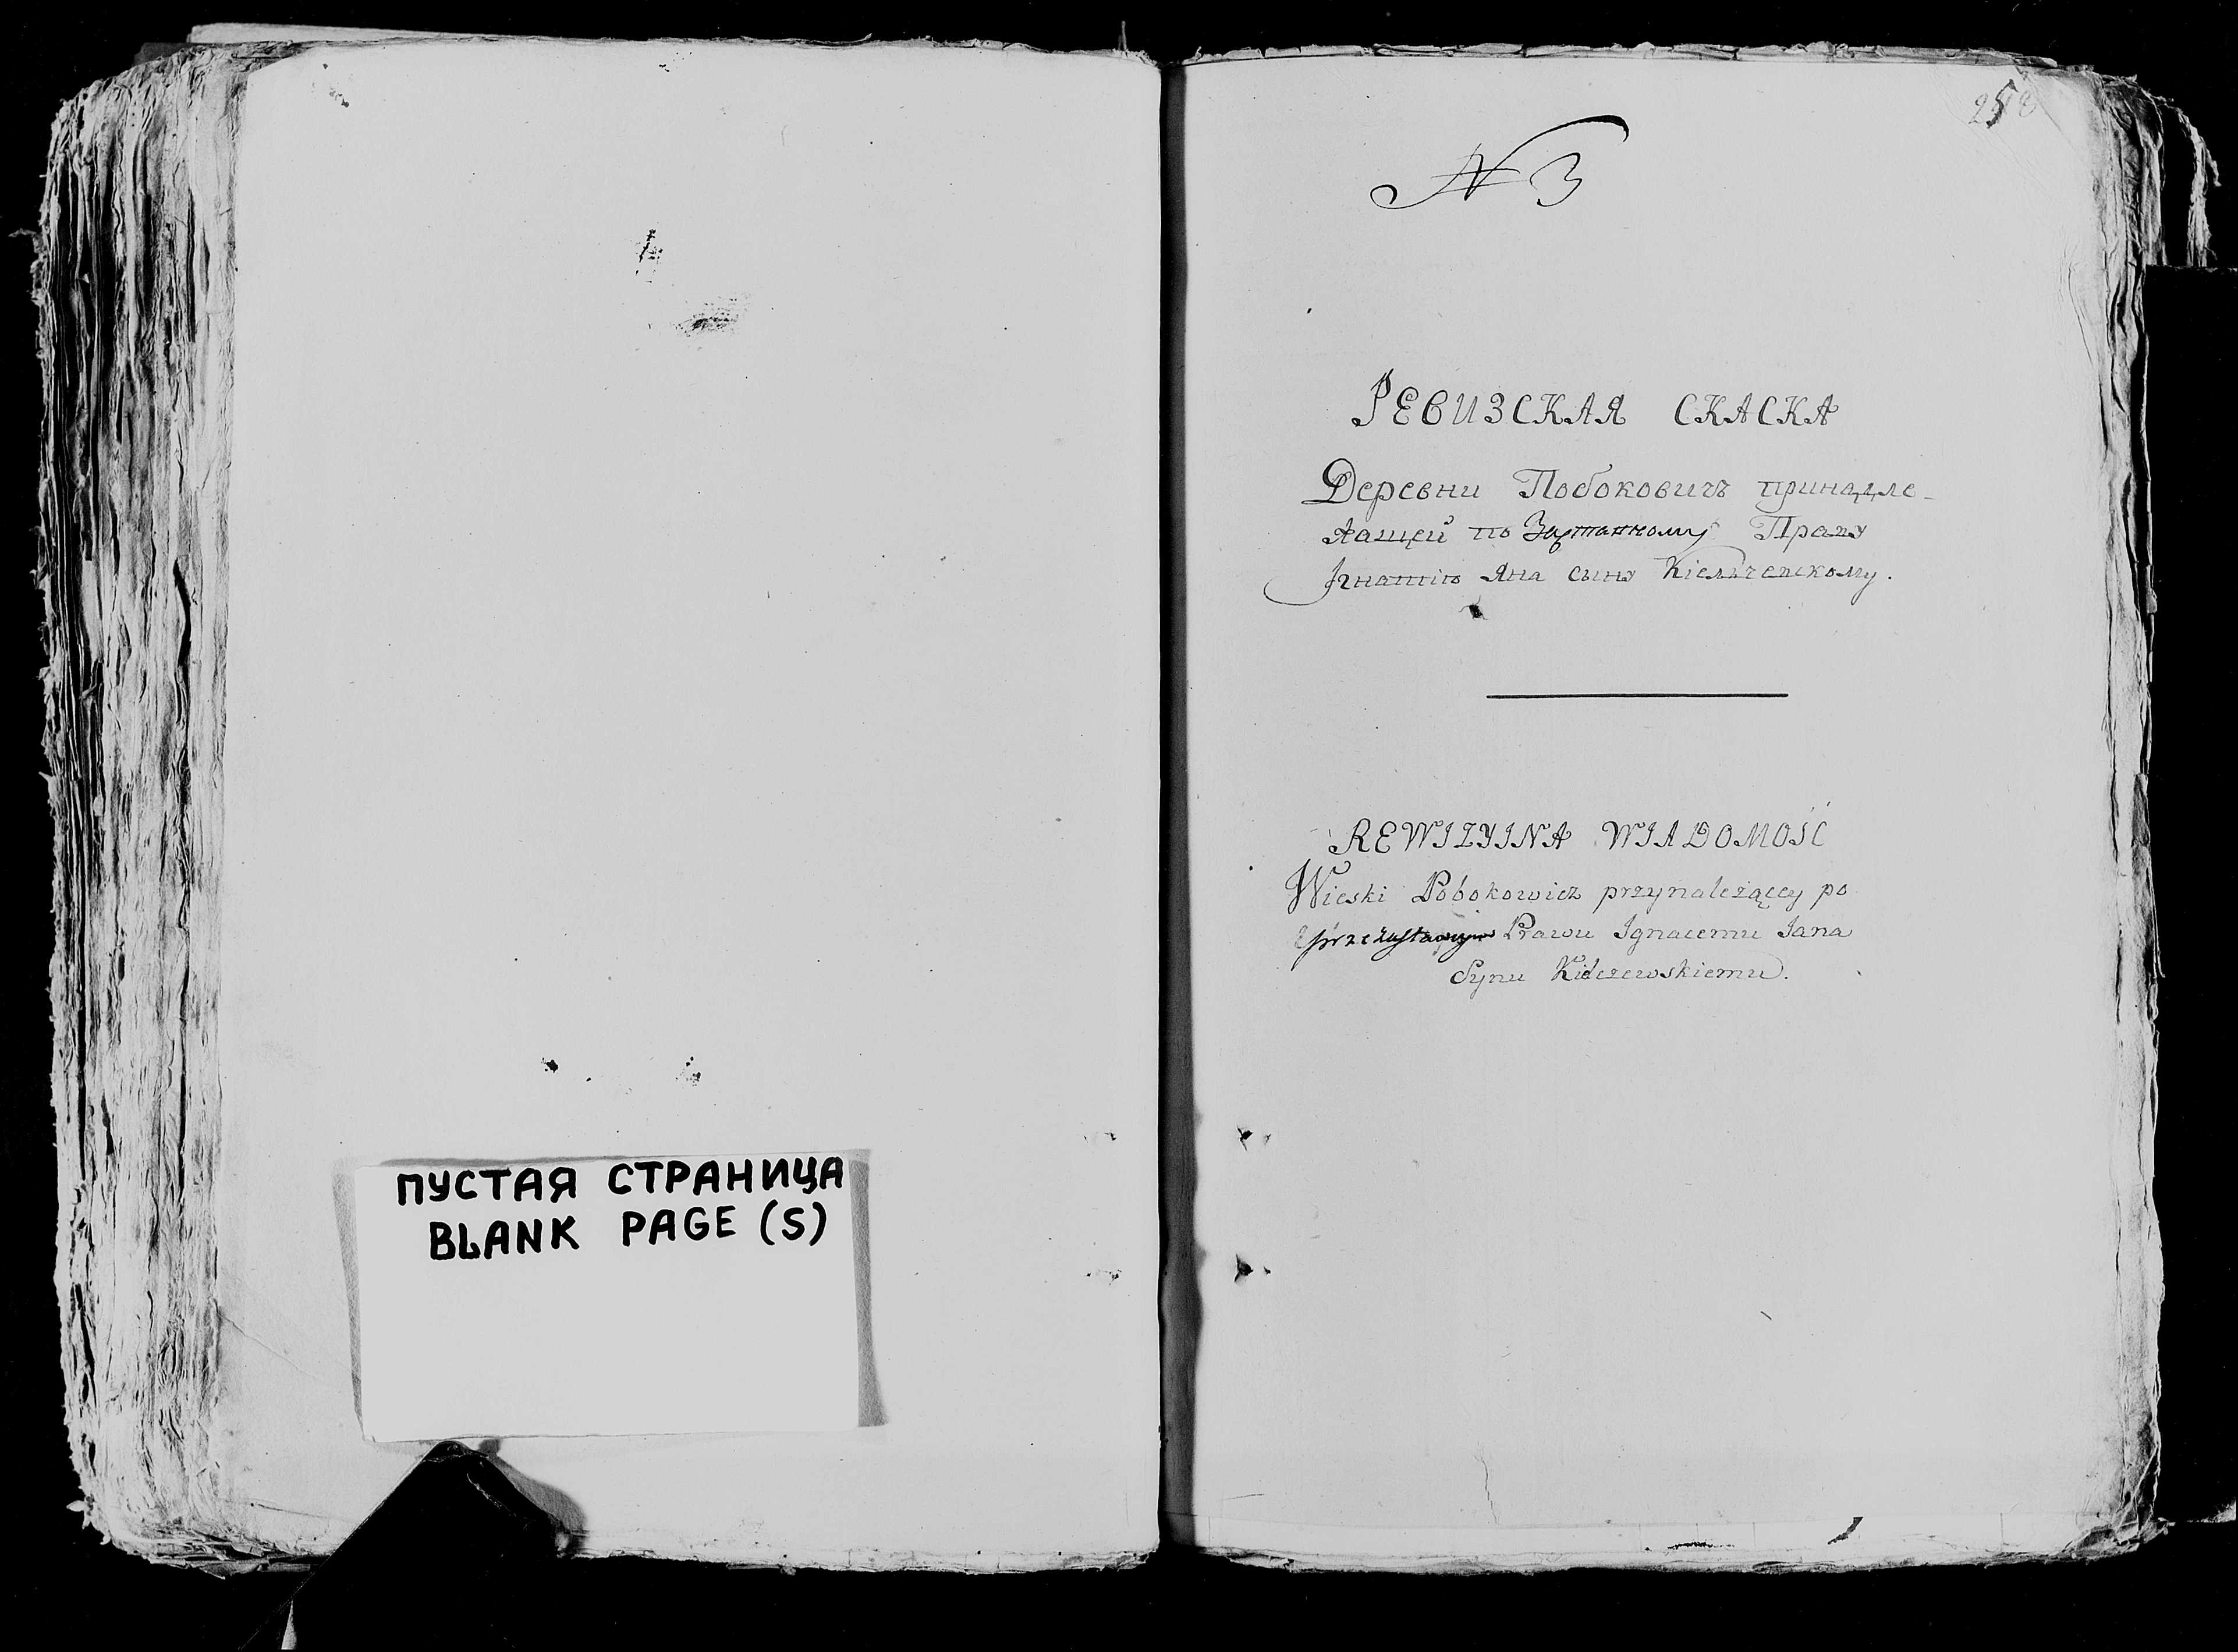 ПУСТАЯ СТРАНИЦА
BLANK PAGE (S)
258
N 3
РЕВИЗСКАЯ СКАСКА
Деревни Побоковичъ принадле-
жащей по Заставному Праву
Iгнатiю Яна сыну Кiельчевскому.
REWIZYINA WIADOMOŚĆ
Wieski Pobokowicz przynależącey po
Prawu Ignacemu Jana
Synu Kielczewskiemu.